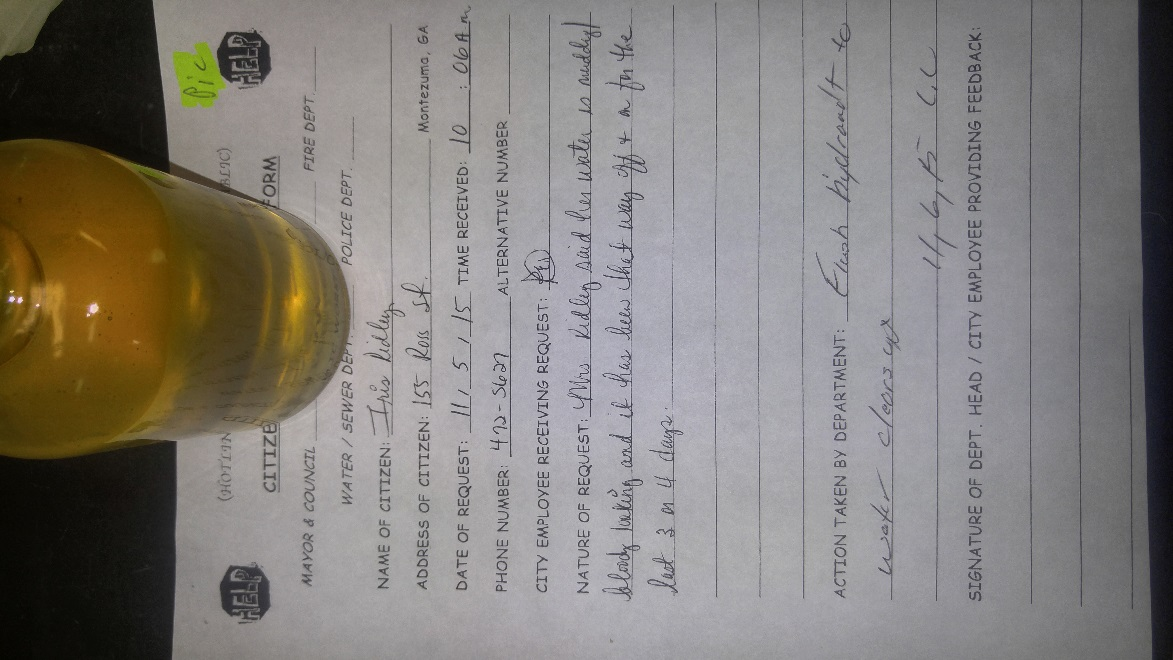 Pic
HELP HELP
(HOTLIN
CITIZE FORM
MAYOR & COUNCIL FIRE DEPT.
WATER / SEWER DEPT. POLICE DEPT.
NAME OF CITIZEN: Iris Ridley
ADDRESS OF CITIZEN: 155 Ross St. Montezuma, GA
DATE OF REQUEST: 11 / 5 / 15 TIME RECEIVED: 10 : 06 A m
PHONE NUMBER: 472-5627 ALTERNATIVE NUMBER
CITY EMPLOYEE RECEIVING REQUEST:
NATURE OF REQUEST: Mrs Ridley said her water is muddy/
bloody looking and it has been that way off & on for the
last 3 or 4 days.
ACTION TAKEN BY DEPARTMENT: Flush hydrandt to
water clears up
11/6/15 C.C
SIGNATURE OF DEPT. HEAD / CITY EMPLOYEE PROVIDING FEEDBACK: